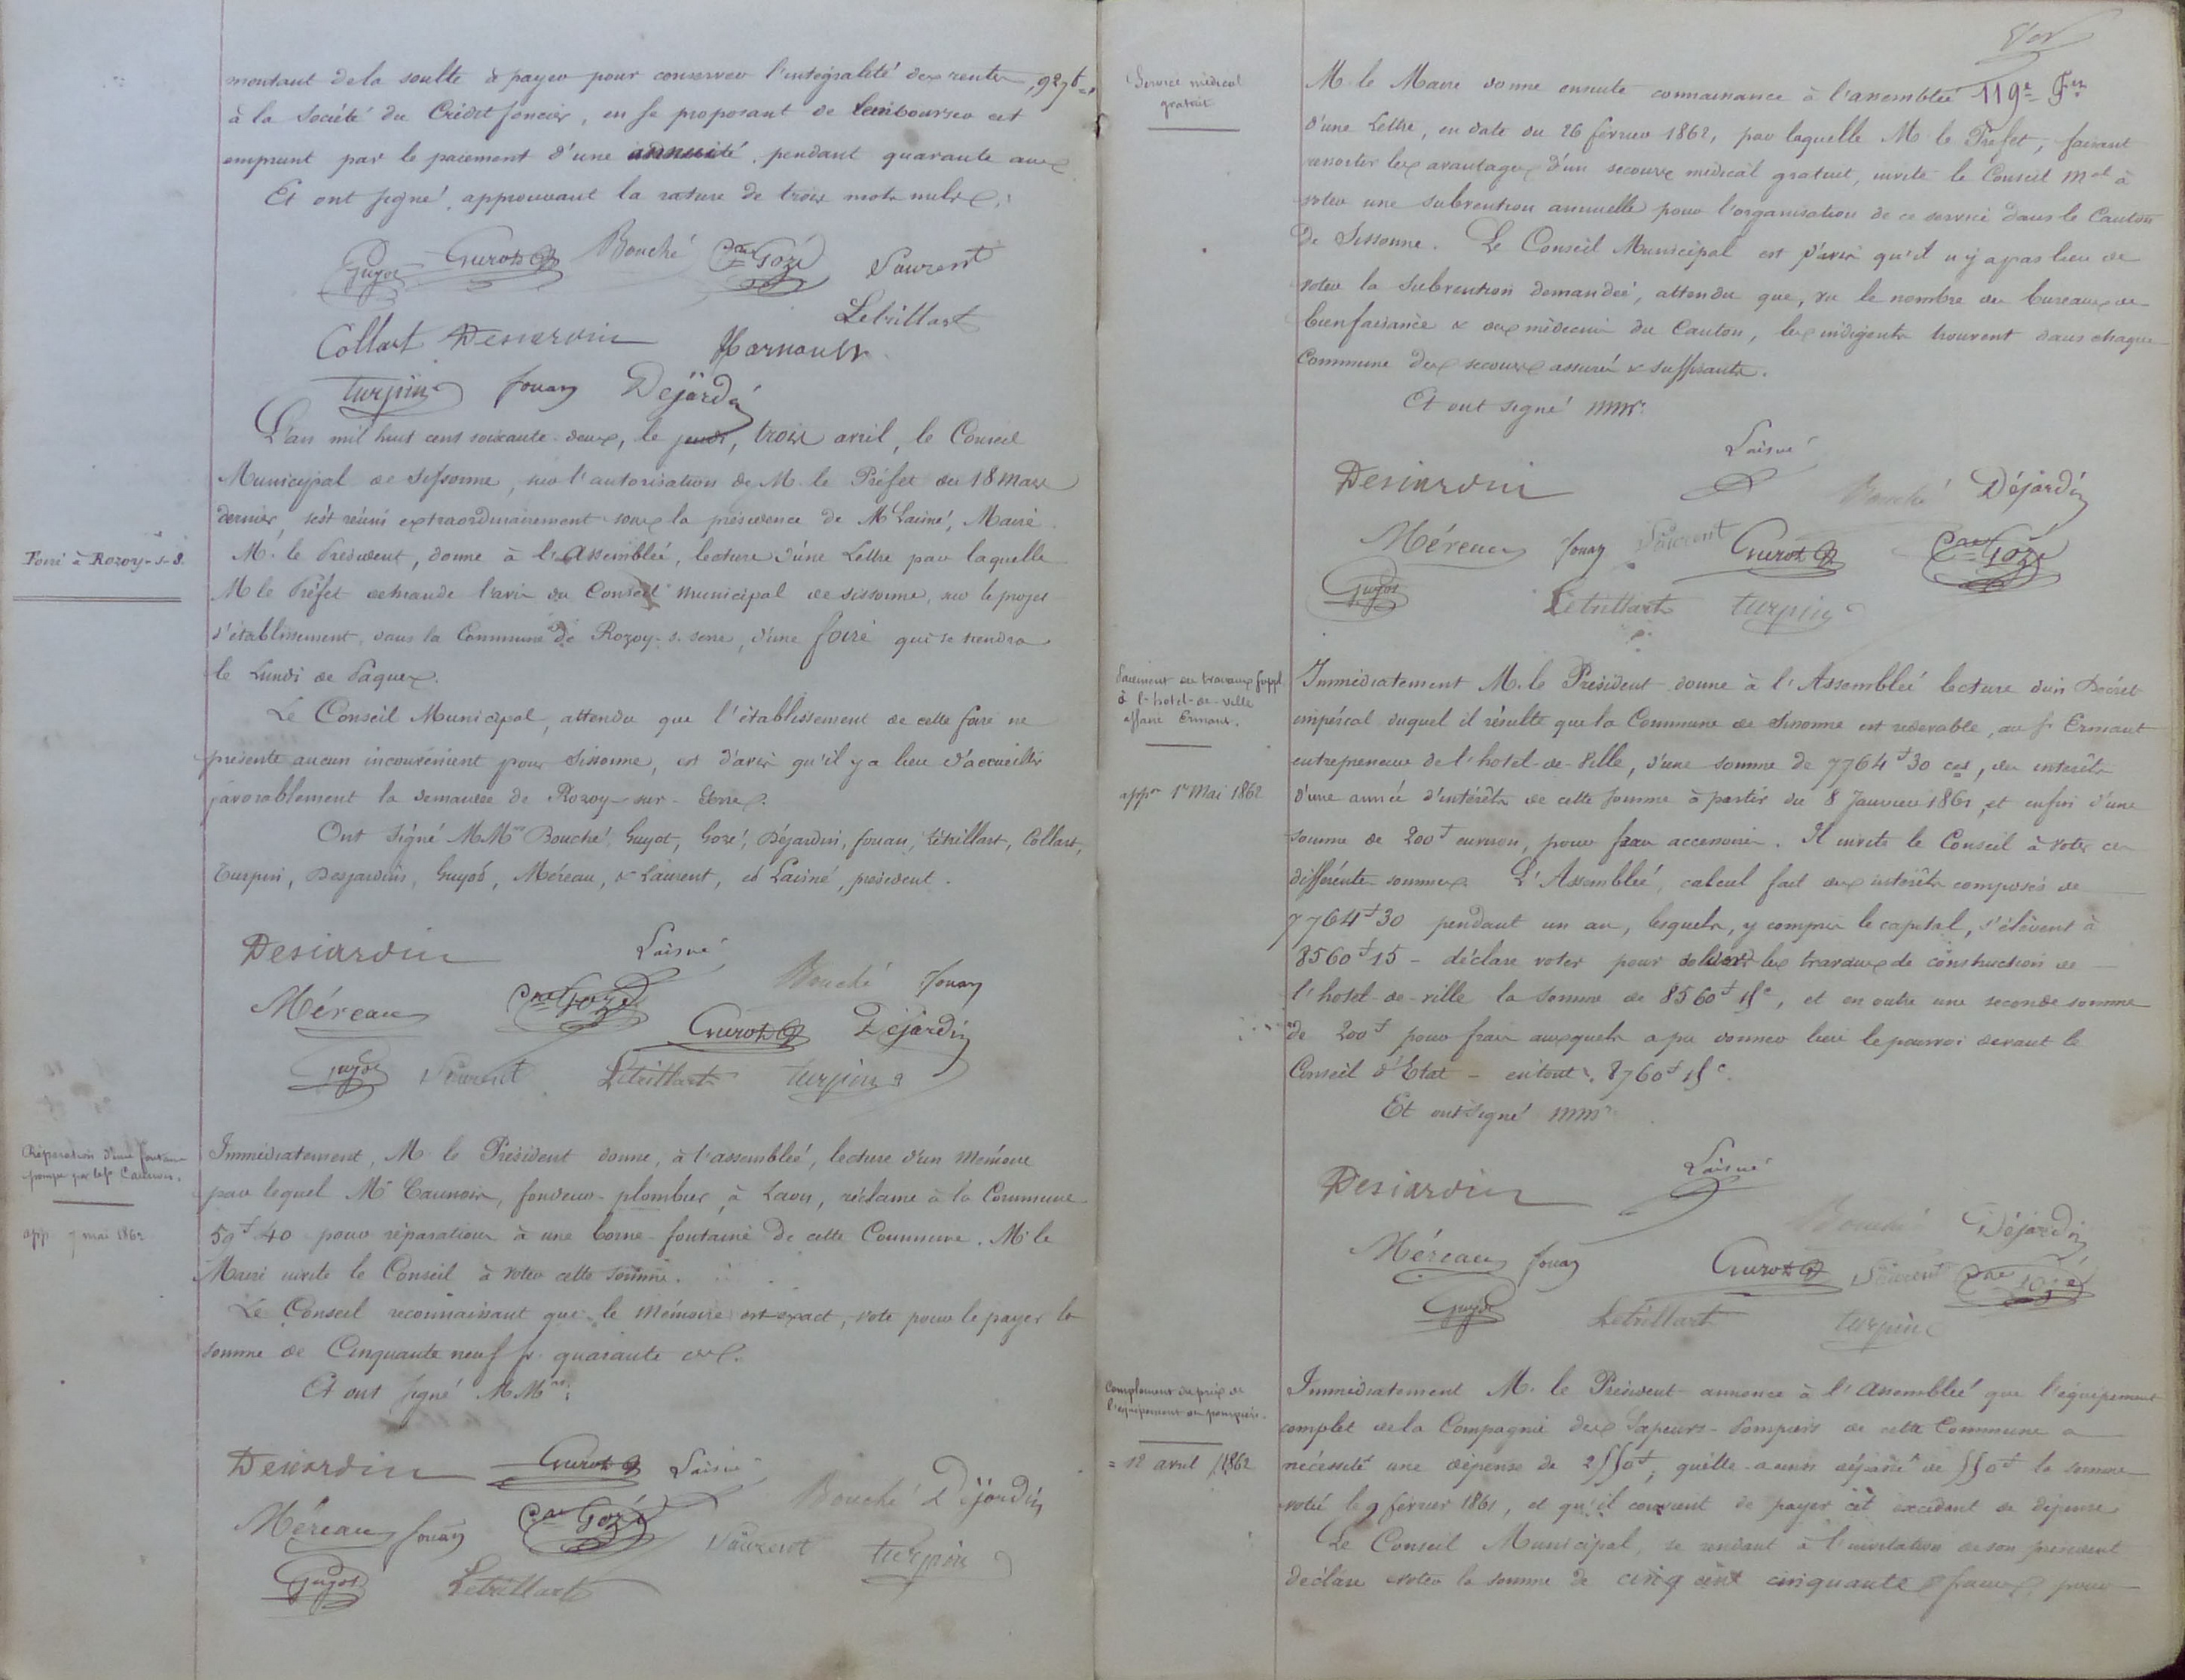 montant de la soulte à payer pour conserver l'intégralité des rentes, 927f
à la Société du Crédit foncier, en se proposant de rembourser cet
emprunt par le paiement d'une annuité pendant quarante ans
Et ont signé, approuvant la rature de trois mots nuls.
Guyot Guyot Bouché Gozé Laurent
Letrillart
Collart Desjardin Harnault
turpin fouan Dejardin
L'an mil huit cent soixante-deux, le jeudi, trois avril, le Conseil
Municipal de Sissonne, sur l'autorisation de M. le Préfet du 18 mars
dernier, s'est réuni extraordinairement sous la présidence de M. Laisné, Maire.
Foire à Rozoy-s-S.
M. le Président, donne à l'Assemblée, lecture d'une Lettre par laquelle
M le Préfet demande l'avis du Conseil municipal de Sissonne, sur le projet
d'établissement, dans la Commune de Rozoy-s. serre, d'une foire qui se tiendra
le Lundi de Pâques.
Le Conseil Municipal, attendu que l'établissement de cette foire ne
présente aucun inconvénient pour Sissonne, est d'avis qu'il y a lieu d'accueillir
favorablement la demande de Rozoy-sur-Serre.
Ont signé MMrs Bouché, Guyot, Gozé, Déjardin, fouan, Létrillart, Collart,
Turpin, Desjardins, Guyot, Méreau, & Laurent, et Laisné, président.
Desjardin Laisné
Bouché fouan
Méreau Gozé
Guyot Déjardin
Guyot Laurent Letrillart turpin
Réparation d'une fontaine
pompe par le Sr
app. 7 mai 1862
Immédiatement, M. le Président donne, à l'assemblée, lecture d'un Mémoire
par lequel Mr fondeur-plombier, à Laon, réclame à la Commune
59f 40 pour réparation à une borne-fontaine de cette Commune. M. le
Maire invite le Conseil à voter cette somme.
Le Conseil reconnaissant que le Mémoire est exact, vote pour le payer la
somme de Cinquante neuf fr. quarante ces.
Et ont signé MMrs:
Desjardin Guyot Laisné
Bouché Déjardin
Méreau fouan Gozé Laurent turpin
Guyot Letrillart
119e Fet
Service médical
gratuit
M. le Maire donne ensuite connaissance à l'assemblée
d'une Lettre, en date du 26 février 1862, par laquelle M. le Préfet, faisant
ressortir les avantages d'un secours médical gratuit, invite le Conseil Mal à
voter une subvention annuelle pour l'organisation de ce service dans le Canton
de Sissonne. Le Conseil Municipal est d'avis qu'il n'y a pas lieu de
voter la subvention demandée, attendu que, vu le nombre des bureaux de
bienfaisance & des médecins du Canton, les indigents trouvent dans chaque
Commune des secours assurés & suffisants.
Et ont signé MMrs.
Laisné
Desjardin Bouché Déjardin
Méreau fouan Laurent Guyot Gozé
Guyot Letrillart turpin
Paiement de travaux suppl.
à l'hotel-de-ville
affaire Ermant.
appn 1er Mai 1862
Immédiatement M. le Président donne à l'Assemblée lecture d'un Décret
impérial duquel il résulte que la Commune de Sissonne est redevable, au sr Ermant
entrepreneur de l'hotel-de-Ville, d'une somme de 7764f 30 ces, des intérêts
d'une année d'intérêts de cette somme à partir du 8 Janvier 1861, et enfin d'une
somme de 200f environ, pour frais accessoires. Il invite le Conseil à voter ces
différentes sommes. L'Assemblée, calcul fait des intérêts composés de
7764f 30 pendant un an, lesquels, y compris le capital, s'élèvent à
8560f 15 - déclare voter pour solder les travaux de construction de
l'hotel-de-ville la somme de 8560f 15c, et en outre une seconde somme
de 200f pour frais auxquels a pu donner lieu le pourvoi devant le
Conseil d'Etat - en tout. 8760f 15c.
Et ont signé MMrs
Desjardin Laisné
Bouché Déjardin
Méreau fouan Guyot Laurent Gozé
Guyot Letrillart turpin
Complément du prix de
l'équipement des pompiers.
= 12 avril 1862
Immédiatement M. le Président annonce à l'Assemblée que l'équipement
complet de la Compagnie des Sapeurs-Pompiers de cette Commune a
nécessité une dépense de 2550f, qu'elle a ainsi dépassé de 550f la somme
votée le 9 février 1861, et qu'il convient de payer cet excédent de dépense
Le Conseil Municipal, se rendant à l'invitation de son président
déclare voter la somme de cinq cent cinquante francs, pour